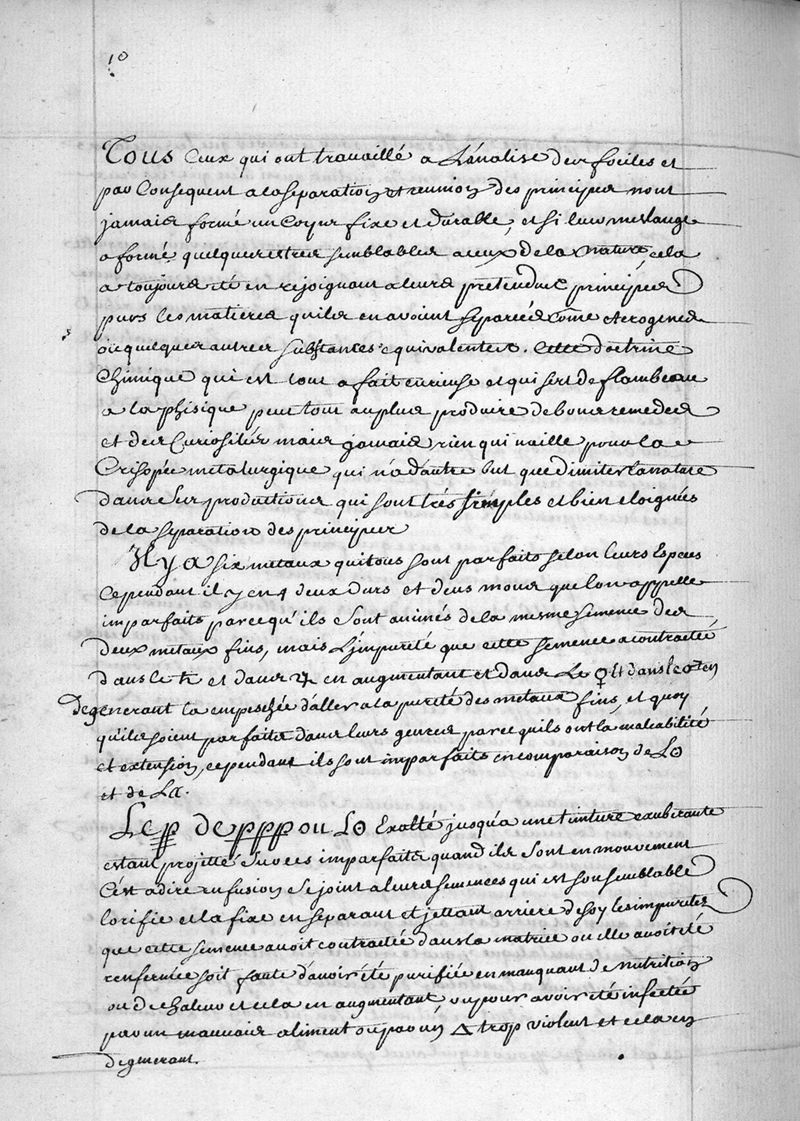 10
Tous Ceux qui ont travaillé a L'analise des fociles et
par Consequent a la separation et reunion des principes nont
jamais formé un Corps fixe et durable, et si leur meslange
a formé quelques estres semblables a ceux de la nature, cela
a toujours eté en rejoignant a leurs pretendus principes
purs les matieres quils en avoint separées côme eterogenes
ou quelques autres substances equivalentes. Cette doctrine
Chimique qui est tout a fait curieuse et qui sert de flambeau
a la phisique peut tout au plus produire de bons remedes
et des Curiosités mais jamais rien qui vaille pour la
Crisopée metalurgique qui n'a d'autre but que d'imiter la nature
dans ses productions qui sont très simples et bien eloignées
de la separation des principes
Il y a six metaux qui tous sont parfaits selon leurs Especes
Cependant il y en 4 deux durs et deus mous que lon appelle
imparfaits parcequ'ils sont animés de la mesme semence des
deux metaux fins, mais L'impureté que cette semence a contractée
dans le ♄ et dans ♃ en augmentant et dans Le ♀ et dans le ♂ en
degenerant la empeschée d'aller a la pureté des metaux fins, et quoy
qu'ils soient parfaits dans leurs genres parce quils ont la maleabilité
et extension, cependant ils sont imparfaits en comparaison de L☉
et de L☾.
Le pp de ppp ou L☉ Exalté jusqu'a une tinture exuberante
estant projetté sur ces imparfaits quand ils sont en mouvement
C'est a dire en fusion se joint a leurs semences qui est son semblable
lorifie et la fixe en separant et jettant arriere de soy les impuretez
que cette semence avoit contractée dans la matrice ou elle avoit eté
renfermée soit faute d'avoir été purifiée en manquant de nutrition
ou de chaleur et cela en augmentant, ou pour avoir eté infectée
par un mauvais aliment ou par un △ trop violent et cela en
degenerant.